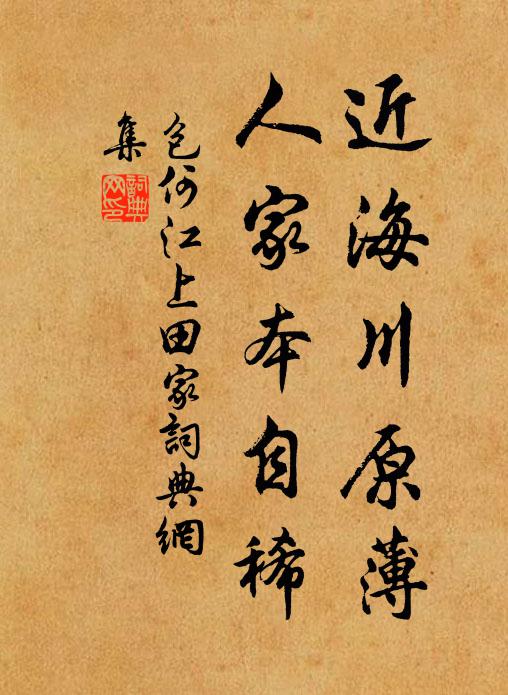 近海川原薄
人家本自稀
包何江上田家詞典網
集
詞典
网印